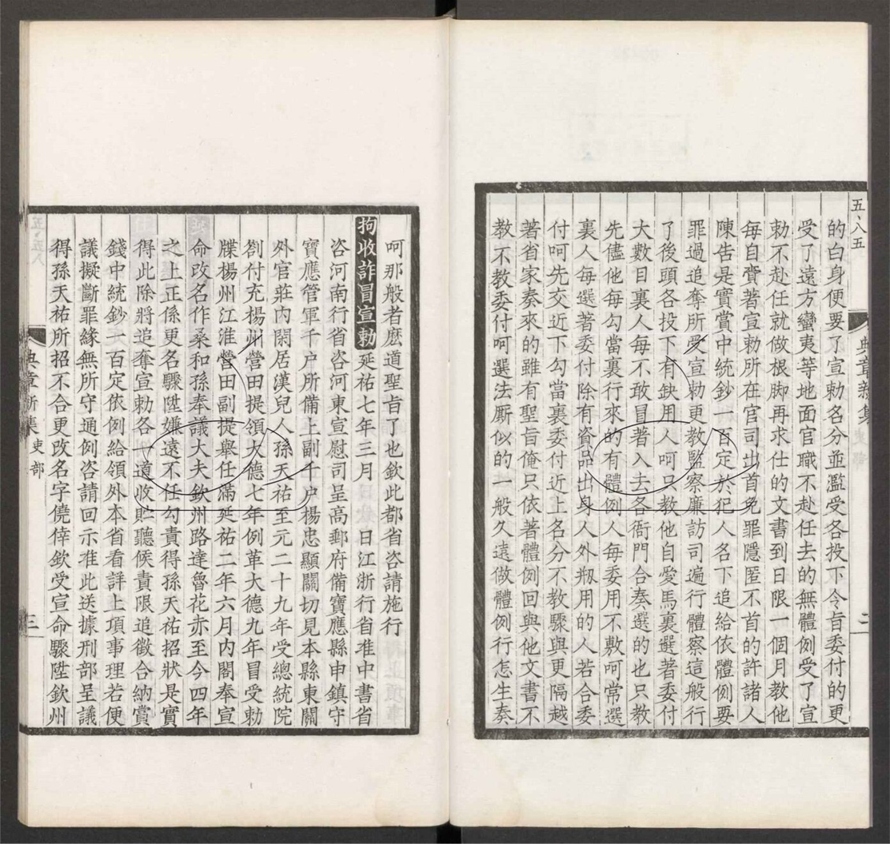 五、八五
的白身便要了宣勅名分並濫受各投下令旨委付的更
受了遠方蠻夷等地面官職不赴任去的無體例受了宣
勅不赴任就做根脚再求仕的文書到日限一個月教他
每自賫著宣勅所在官司出首免罪隱匿不首的許諸人
陳告是實賞中統鈔一百定於犯人名下追給依體例要
罪過追奪所受宣勅更教監察廉訪司遍行體察這般行
了後頭各投下有缺用人呵只教他自愛馬裏選著委付
大數目裏人每不敢冒著入去各衙門合奏選的也只教
先儘他每勾當裏行來的有體例人每委用不敷呵常選
裏人每選著委付除有資品出身人外剏用的人若合委
付呵先交近下勾當裏委付近上名分不教驟與更隔越
著省家奏來的雖有聖旨俺只依著體例回與他文書不
教不教委付呵選法厮似的一般久遠做體例行怎生奏
典章新集 吏部
二
呵那般者麽道聖旨了也欽此都省咨請施行
拘收詐冒宣勅 延祐七年三月 日江浙行省准中書省
咨河南行省咨河東宣慰司呈高郵府備寶應縣申鎮守
寶應管軍千户所備上副千户楊忠顯關切見本縣東關
外官莊内閑居漢兒人孫天祐至元二十九年受總統院
劄付充楊州營田提領大德七年例革大德九年冒受勅
牒楊州江淮營田副提舉任滿延祐二年六月内閣奉宣
命改名作桑和孫奉議大夫欽州路達魯花赤至今四年
之上正係更名驟陞嫌遠不任勾責得孫天祐招狀是實
得此除將追奪宣勅各一道收貯聽候責限追徵合納賞
錢中統鈔一百定依例給領外本省看詳上項事理若便
議擬斷罪緣無所守通例咨請回示准此送據刑部呈議
得孫天祐所招不合更改名字僥倖欽受宣命驟陞欽州
典章新集 吏部
三